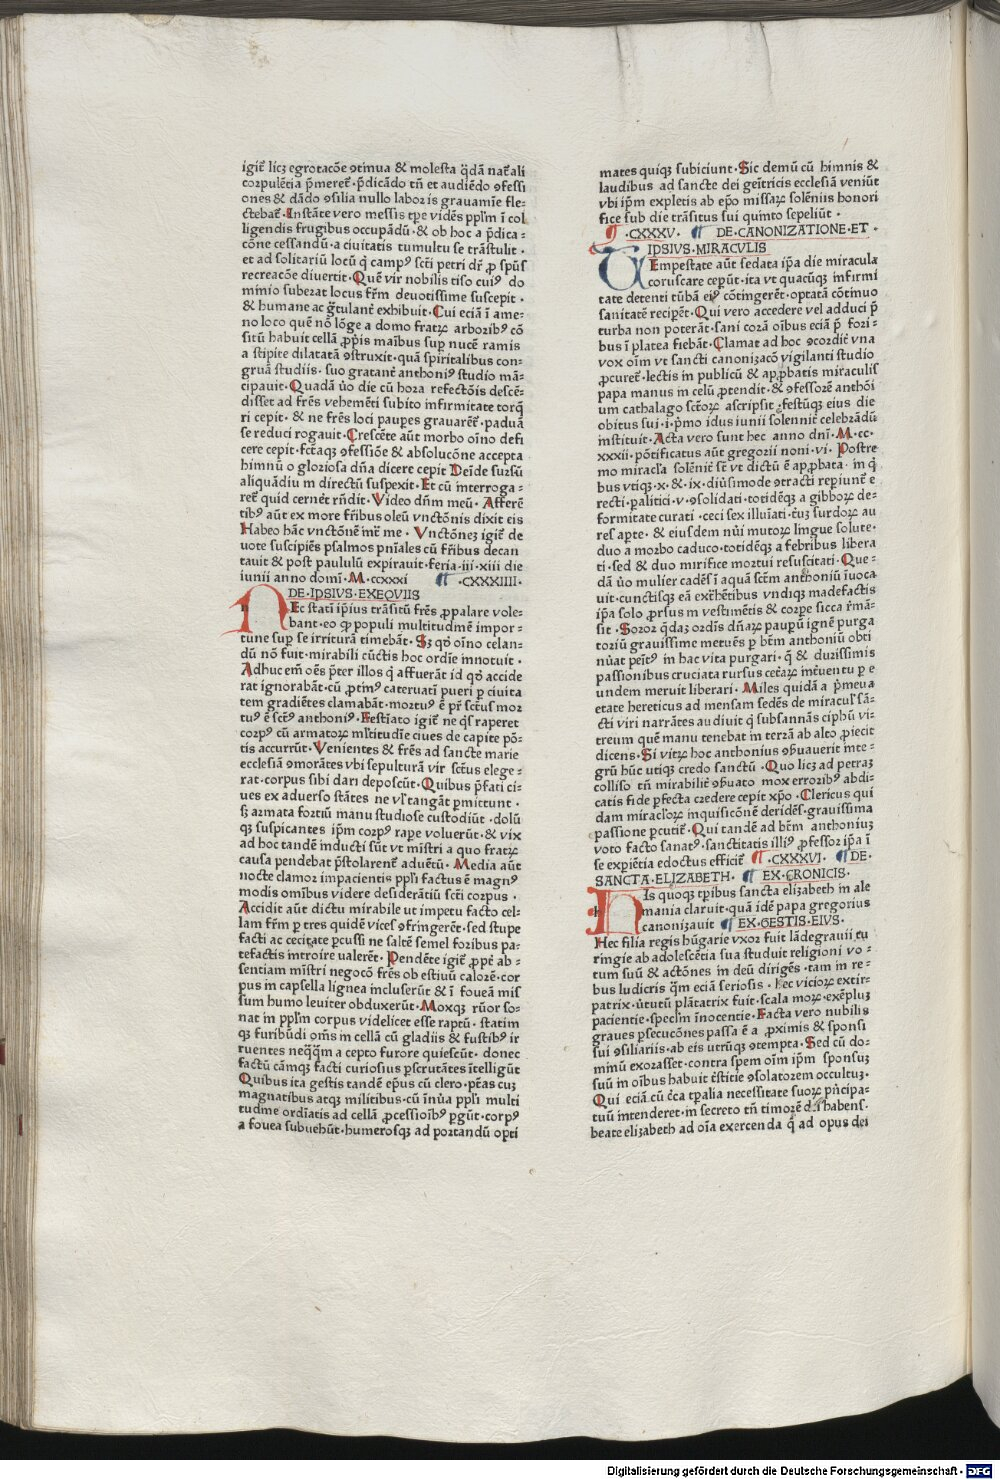 igit̃ licꝫ egrotacõe ꝯtinua & molesta q̃dã nat̃ali
corpulẽtia p̃meret̃ · p̃dicãdo tñ et audiẽdo ꝯfessi
ones & dãdo ꝯsilia nullo laboris grauamĩe fle⸗
ctebat̃ · Instãte vero messis tp̃e vidẽs ppl̃m ĩ col
ligendis frugibus occupãdũ · & ob hoc a p̃dica⸗
cõne cessandũ · a ciuitatis tumultu se trãstulit ·
et ad solitariũ locũ q̃ campꝰ scti petri dr̃ ꝓ spũs
recreacõe diuertit · Quẽ vir nobilis tiso cuiꝰ do
minio suberat locus fr̃m deuotissime suscepit ·
& humane ac g̃tulant̃ exhibuit · Cui eciã ĩ ame⸗
no loco quẽ nõ lõge a domo fratꝝ arboribꝰ cõ
sitũ habuit cellã ꝓp̃is maĩbus sup̱ nucẽ ramis
a stipite dilatatã ꝯstruxit · quã spiritalibus con⸗
gruã studiis · suo gratant̃ anthoniꝰ studio mã⸗
cipauit · Quadã ṽo die cũ hora refectõis descẽ⸗
disset ad fr̃es vehemẽti subito infirmitate torq̃
ri cepit · & ne fr̃es loci paup̱es grauarẽt̃ · paduã
se reduci rogauit · Crescẽte aũt morbo oĩno defi
cere cepit · fctãqꝫ ꝯfessiõe & absolucõne accepta
himnũ o gloriosa dñã dicere cepit Deĩde sursũ
aliquãdiu in directũ suspexit · Et cũ interroga⸗
ret̃ quid cernet̃ rñdit · Video dñm meũ · Afferẽ
tibꝰ aũt ex more fr̃ibus oleũ vnctõnis dixit eis
Habeo hãc vnctõnẽ int̃ me · Vnctõneꝫ igit̃ de
uote suscipiẽs psalmos pniales cũ fr̃ibus decan
tauit & post paululũ expirauit · feria · iii · xiii die
iunii anno domi · M · ccxxxi ¶ · CXXXIIII ·
DE · IPSIVS · EXEQVIIS
NEc stati ip̃ius trãsitũ fr̃es ꝓpalare vole⸗
bant · eo ꝙ populi multitudinẽ impor⸗
tune sup̱ se irriturã timebãt · Sꝫ qđ oĩno celan⸗
dũ nõ fuit · mirabili cũctis hoc ordĩe innotuit ·
Adhuc em̃ oẽs p̃ter illos q̃ affuerãt id qđ accide
rat ignorabãt · cũ ꝓtinꝰ cateruati pueri p̱ ciuita
tem gradiẽtes clamabãt · mortuꝰ ẽ pr̃ sctũs mor
tuꝰ ẽ sctꝰ anthoniꝰ · Festiato igit̃ ne q̃s raperet
corpꝰ cũ armatoꝝ ml̃titudĩe ciues de capite põ⸗
tis accurrũt · Venientes & fr̃es ad sancte marie
ecclesiã ꝯmorãtes vbi sepulturã vir sctũs elege⸗
rat · corpus sibi dari deposcũt · Quibus p̃fati ci⸗
ues ex aduerso stãtes ne vl̃ tangãt p̱mittunt ·
sꝫ armata fortiũ manu studiose custodiũt · dolũ
qꝫ suspicantes ip̃m corpꝰ rap̱e voluerũt · & vix
ad hoc tandẽ inducti sũt vt mistri a quo fratꝝ
causa pendebat p̃stolarent̃ aduẽtũ · Media aũt
nocte clamor impacientis ppl̃i factus ẽ magnꝰ
modis omĩbus videre desiderãtiũ scti corpus ·
Accidit aũt dictu mirabile ut impetu facto cel⸗
lam fr̃m p̱ tres quidẽ viceſ ꝯfrĩgerẽt · sed stupe
facti ac cecitate p̱cussi ne saltẽ semel foribus pa⸗
tefactis introire ualerẽt · Pendẽte igit̃ ꝓpt̃ ab⸗
sentiam mistri negocõ fr̃es ob estiuũ calorẽ · cor
pus in capsella lignea incluserũt & ĩ foueã mis
sum humo leuiter obduxerũt · Moxqꝫ rũor so⸗
nat in ppl̃m corpus videlicet esse raptũ · statim
qꝫ furibũdi om̃s in cellã cũ gladiis & fustibꝰ ir
ruentes neq̃q̃m a cepto furore quiescũt · donec
factũ cãmqꝫ facti curiosius p̱scrutãtes ĩtelligũt
Quibus ita gestis tandẽ ep̃us cũ clero · pt̃as cuꝫ
magnatibus atqꝫ militibus · cũ ĩnũa ppl̃i multi
tudine ordĩatis ad cellã ꝓcessioĩbꝰ p̱gũt · corpꝰ
a fouea subuehũt · humerosqꝫ ad portandũ opti
mates quiqꝫ subiciunt · Sic demũ cũ himnis &
laudibus ad sancte dei geĩtricis ecclesiã veniũt
vbi ip̃m expletis ab ep̃o missaꝝ solẽniis honori
fice sub die trãsitus sui quinto sepeliũt ·
¶ · CXXXV · ¶ DE · CANONIZATIONE · ET ·
IPSIVS · MIRACVLIS
TEmpestate aũt sedata ip̃a die miracula
coruscare cepũt · ita vt quacũqꝫ infirmi
tate detenti tũbã eiꝰ cõtingerẽt · optatã cõtinuo
sanitatẽ recip̱ẽt · Qui vero accedere vel adduci p̃
turba non poterãt · sani corã oĩbus eciã p̃ fori⸗
bus ĩ platea fiebãt · Clamat ad hoc ꝯcordit̃ vna
vox oĩm vt sancti canonizacõ vigilanti studio
ꝓcuret̃ · lectis in publicũ & approbatis miraculis
papa manus in celũ ꝓtendit · & ꝯfessorẽ anthõi
um cathalago sctõꝝ ascripsit · festũqꝫ eius die
obitus sui · i · p̃mo idus iunii solennit̃ celebrãdũ
instituit · Acta vero sunt hec anno dni · M · cc⸗
xxxii · põtificatus aũt gregorii noni · vi · Postre
mo miracl̃a solẽnit̃ st̃ vt dictũ ẽ approbata · in q̃
bus vtiqꝫ · x · & · ix · diũsimode ꝯtracti rep̱iunt̃ e
recti · p̱alitici · v · ꝯsolidati · totidẽqꝫ a gibboꝝ de⸗
formitate curati · ceci sex illuĩati · t̃iꝫ surdoꝝ au
res ap̱te · & eiusdem nũi mutoꝝ lingue solute ·
duo a morbo caduco · totidẽqꝫ a febribus libera
ti · sed & duo mirifice mortui resuscitati · Que⸗
dã ṽo mulier cadẽs ĩ aquã sctm̃ anthoniũ ĩuoca
uit · cunctisqꝫ eã extr̃hẽtibus vndiqꝫ madefactis
ip̃a solo ꝓrsus in vestimẽtis & corp̱e sicca r̃mã⸗
sit · Soror q̃daꝫ ordĩs dñaꝝ paup̱ũ ignẽ purga
toriũ grauissime metuẽs p̱ btm̃ anthoniũ obti
nũat peĩtꝰ in hac vita purgari · q̃ & durissimis
passionibus cruciata rursus cet̃aꝝ int̃uentu p̱ e
undem meruit liberari · Miles quidã a p̃meua
etate hereticus ad mensam sedẽs de miracul̃ sã⸗
cti viri narrãtes audiuit q̃ subsannãs ciphũ vi⸗
treum quẽ manu tenebat in terrã ab alto ꝓiecit
dicens · Si vitꝝ hoc anthonius ꝯs̃uauerit inte⸗
grũ hũc utiqꝫ credo sanctũ · Quo licꝫ ad petraꝫ
colliso tñ mirabilit̃ ꝯs̃uato mox erroribꝰ abdi⸗
catis fide p̱fecta credere cepit xp̃o · Clericus qui
dam miracl̃oꝝ inquisicõnẽ deridẽs · grauissima
passione p̱cutit̃ · Qui tandẽ ad btm̃ anthoniuꝫ
voto facto sanatꝰ · sanctitatis illiꝰ ꝓfessor ip̃a ĩ
se exp̱iẽtia edoctus efficit̃ ¶ · CXXXVI · ¶ DE ·
SANCTA · ELIZABETH · ¶ EX · CRONICIS ·
HIs quoqꝫ tp̃ibus sancta elizabeth in ale
mania claruit · quã idẽ papa gregorius
canonizauit ¶ EX · GESTIS · EIVS ·
Hec filia regis hũgarie vxor fuit lãdegrauii tu
ringie ab adolescẽtia sua studuit religioni vo⸗
tum suũ & actõnes in deũ dirigẽs · tam in re⸗
bus ludicris q̃m eciã seriosis · Hec vicioꝝ extir⸗
patrix · ũtutũ plãtatrix fuit · scala moꝝ · exẽpluꝫ
pacientie · specl̃m ĩnocentie · Facta vero nubilis
graues p̱secucõnes passa ẽ a ꝓximis & sponsi
sui ꝯsiliariis · ab eis utrũqꝫ ꝯtempta · Sed cũ do⸗
minũ exorasset · contra spem oĩm ip̃m sponsuꝫ
suũ in oĩbus habuit c̃stitie ꝯsolatorem occultuꝫ ·
Qui eciã cũ c̃ca tp̱alia necessitate suoꝝ p̃ncipa⸗
tuũ intenderet · in secreto tñ timorẽ dei habens ·
beate elizabeth ad oĩa exercenda q̃ ad opus dei
Digitalisierung gefördert durch die Deutsche Forschungsgemeinschaft - DFG